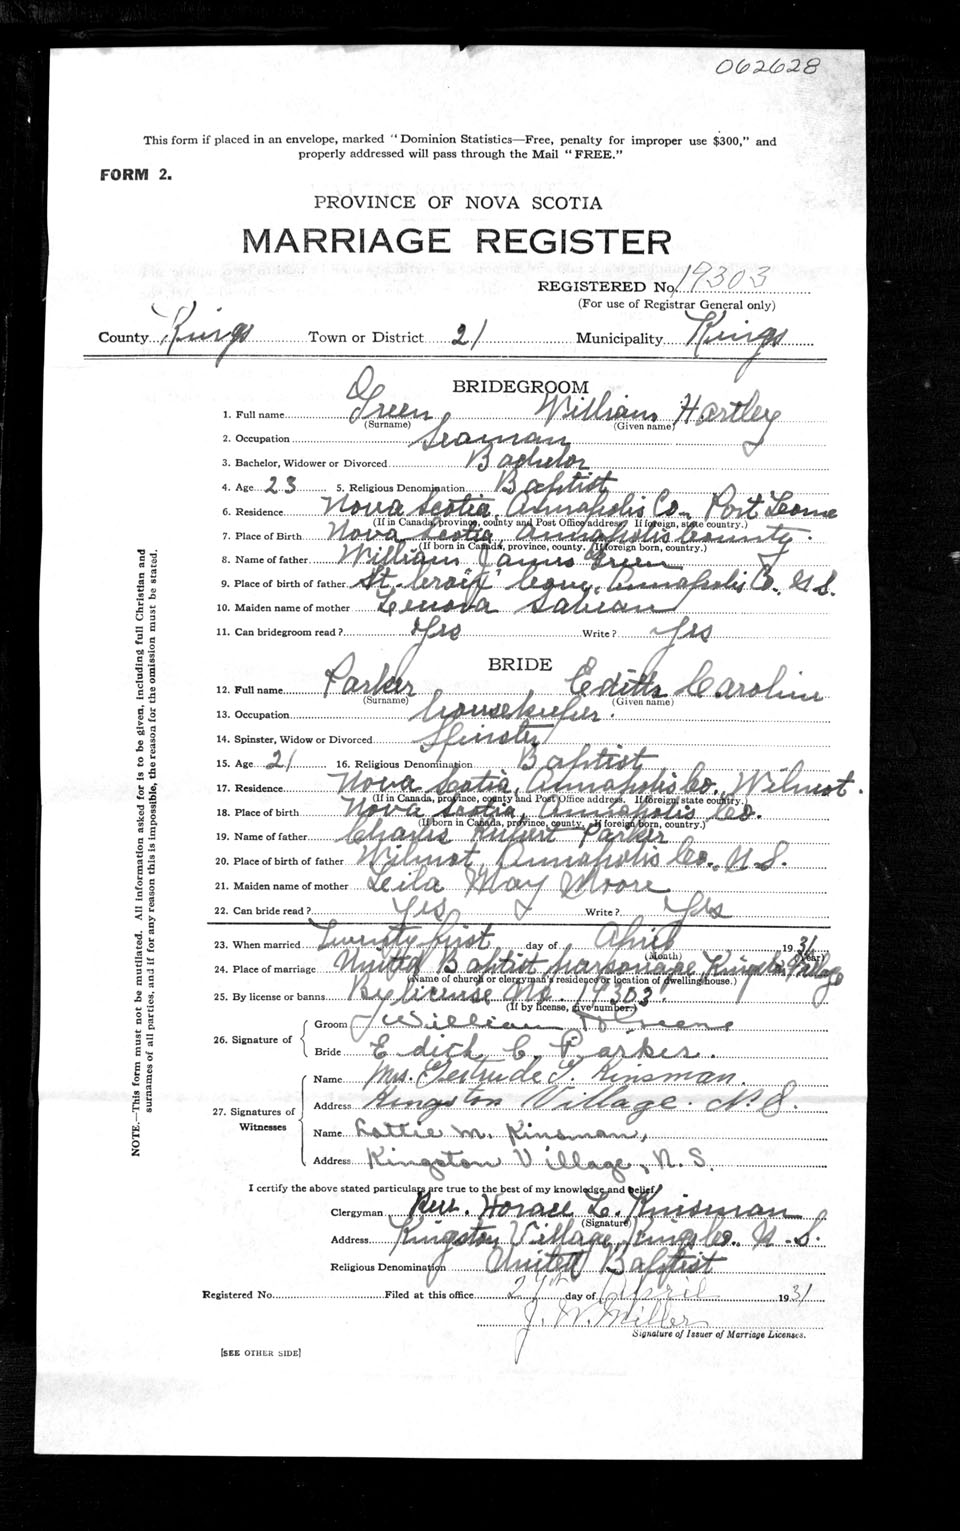 062628
This form if placed in an envelope, marked "Dominion Statistics—Free, penalty for improper use $300," and
properly addressed will pass through the Mail "FREE."
FORM 2.
PROVINCE OF NOVA SCOTIA
MARRIAGE REGISTER
REGISTERED No. 19303
(For use of Registrar General only)
County Kings Town or District 21 Municipality Kings
BRIDEGROOM
1. Full name Green William Hartley
(Surname) (Given name)
2. Occupation Seaman
3. Bachelor, Widower or Divorced Bachelor
4. Age 23 5. Religious Denomination Baptist
6. Residence Nova Scotia, Annapolis Co. Port Lorne
(If in Canada, province, county and Post Office address. If foreign, state country.)
7. Place of Birth Nova Scotia, Annapolis County.
(If born in Canada, province, county. If foreign born, country.)
8. Name of father William James Green
9. Place of birth of father St. Croix Cove, Annapolis Co., N.S.
10. Maiden name of mother Lenova Sabean
11. Can bridegroom read? Yes Write? Yes
BRIDE
12. Full name Parker Edith Caroline
(Surname) (Given name)
13. Occupation housekeeper.
14. Spinster, Widow or Divorced Spinster
15. Age 21 16. Religious Denomination Baptist
17. Residence Nova Scotia, Annapolis Co., Wilmot.
(If in Canada, province, county and Post Office address. If foreign, state country.)
18. Place of birth Nova Scotia, Annapolis Co.
(If born in Canada, province, county. If foreign born, country.)
19. Name of father Charles Parker
20. Place of birth of father Wilmot, Annapolis Co., N.S.
21. Maiden name of mother Leila May Moore
22. Can bride read? Yes Write? Yes
23. When married Twenty first day of April 1931
(Month) (Year)
24. Place of marriage United Baptist parsonage, Kingston Village
(Name of church or clergyman's residence or location of dwelling house.)
25. By license or banns By license No. 19303.
(If by license, give number.)
26. Signature of
Groom William H Greene
Bride Edith C. Parker.
27. Signatures of Witnesses
Name Mrs. Gertrude Kinsman.
Address Kingston Village. N.S.
Name Lottie M. Kinsman,
Address Kingston Village, N.S.
I certify the above stated particulars are true to the best of my knowledge and belief.
Clergyman Rev. Horace L. Kinsman
(Signature)
Address Kingston Village, Kings Co., N.S.
Religious Denomination United Baptist
Registered No. Filed at this office 21st day of April 1931
J. W. Miller
Signature of Issuer of Marriage Licenses.
[SEE OTHER SIDE]
NOTE.—This form must not be mutilated. All information asked for is to be given, including full Christian and
surnames of all parties, and if for any reason this is impossible, the reason for the omission must be stated.